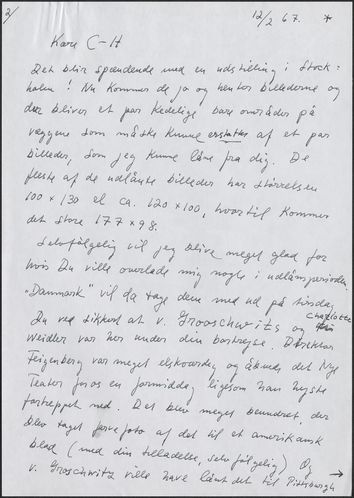 2/
12/2 67. *
Kære C-H
Det blir spændende med en udstilling i Stock=
holm! Nu kommer de jo og henter billederne og
der bliver et par kedelige bare områder på
væggene som måske kunne erstattes af et par
billeder, som jeg kunne låne fra dig. De
fleste af de udlånte billeder har størrelsen
100 x 130 el ca. 120 x 100, hvortil kommer
det store 177 x 98.
Selvfølgelig vil jeg blive meget glad for
hvis Du ville overlade mig nogle i udlånsperioden.
"Danmark" vil da tage dem med ud på tirsdag.
Du ved sikkert at v. Groschwitz og Charlotte
Weidler var her under din bortrejse. Direktør
Feigenberg var meget elskværdig og åbnede det Nye
Teater for os en formiddag ligesom han hejste
fortæppet ned. Det blev meget beundret, der
blev taget farvefoto af det til et amerikansk
blad (med din tilladelse, selvfølgelig) Og
v. Groschwitz ville have lånt det til Pittsburgh →